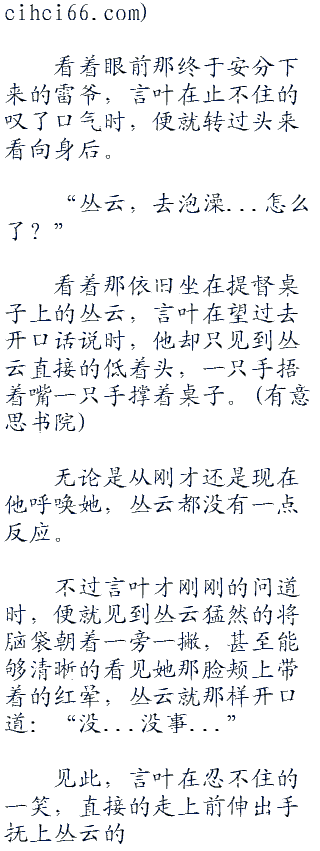 cihci66.com)
看着眼前那终于安分下
来的雷爷，言叶在止不住的
叹了口气时，便就转过头来
看向身后。
“丛云，去泡澡...怎么
了？”
看着那依旧坐在提督桌
子上的丛云，言叶在望过去
开口话说时，他却只见到丛
云直接的低着头，一只手捂
着嘴一只手撑着桌子。(有意
思书院)
无论是从刚才还是现在
他呼唤她，丛云都没有一点
反应。
不过言叶才刚刚的问道
时，便就见到丛云猛然的将
脑袋朝着一旁一撇，甚至能
够清晰的看见她那脸颊上带
着的红晕，丛云就那样开口
道：“没...没事...”
见此，言叶在忍不住的
一笑，直接的走上前伸出手
抚上丛云的